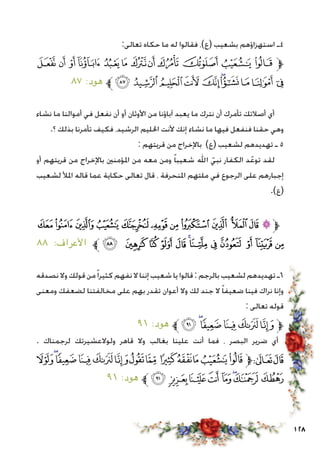 4ـ استهزاؤهم بشعيب (ع). فقالوا له ما حكاه تعالى:
﴿ قَالُوا۟ يَـٰشُعَيْبُ أَصَلَوٰتُكَ تَأْمُرُكَ أَن نَّتْرُكَ مَا يَعْبُدُ ءَابَآؤُنَآ أَوْ أَن نَّفْعَلَ
فِىٓ أَمْوَٰلِنَا مَا نَشَـٰٓؤُا۟ إِنَّكَ لَأَنتَ ٱلْحَلِيمُ ٱلرَّشِيدُ ﴿٨٧﴾ ﴾ هود: ٨٧
أي أصلاتك تأمرك أن نترك ما يعبد آباؤنا من الأوثان أو أن نفعل في أموالنا ما نشاء
وهي حقنا فنفعل فيها ما نشاء إنك لأنت الحليم الرشيد. فكيف تأمرنا بذلك ؟.
٥ ـ تهديدهم لشعيب (ع) بالإخراج من قريتهم :
لقد توعّد الكفار نبيّ الله شعيباً ومن معه من المؤمنين بالإخراج من قريتهم أو
إجبارهم على الرجوع في ملتهم المنحرفة . قال تعالى حكاية عما قاله الملأ لشعيب
(ع).
﴿ ۞ قَالَ ٱلْمَلَأُ ٱلَّذِينَ ٱسْتَكْبَرُوا۟ مِن قَوْمِهِۦ لَنُخْرِجَنَّكَ يَـٰشُعَيْبُ وَٱلَّذِينَ ءَامَنُوا۟ مَعَكَ
مِن قَرْيَتِنَآ أَوْ لَتَعُودُنَّ فِى مِلَّتِنَا قَالَ أَوَلَوْ كُنَّا كَـٰرِهِينَ ﴿٨٨﴾ ﴾ الأعراف: ٨٨
٦ـ تهديدهم لشعيب بالرجم : قالوا يا شعيب إننا لا نفهم كثيراً من قولك ولا نصدقه
وإنا نراك فينا ضعيفاً لا جند لك ولا أعوان تقدر بهم على مخالفتنا لضعفك ومعنى
قوله تعالى :
﴿ وَإِنَّا لَنَرَىٰكَ فِينَا ضَعِيفًا ﴿٩١﴾ ﴾ هود: ٩١
أي ضرير البصر . فما أنت علينا بغالب ولا قاهر ولولاعشيرتك لرجمناك ،
قال تعالى: ﴿ قَالُوا۟ يَـٰشُعَيْبُ مَا نَفْقَهُ كَثِيرًا مِّمَّا تَقُولُ وَإِنَّا لَنَرَىٰكَ فِينَا ضَعِيفًا وَلَوْلَا
رَهْطُكَ لَرَجَمْنَـٰكَ وَمَآ أَنتَ عَلَيْنَا بِعَزِيزٍ ﴿٩١﴾ ﴾ هود: ٩١
١٢٨